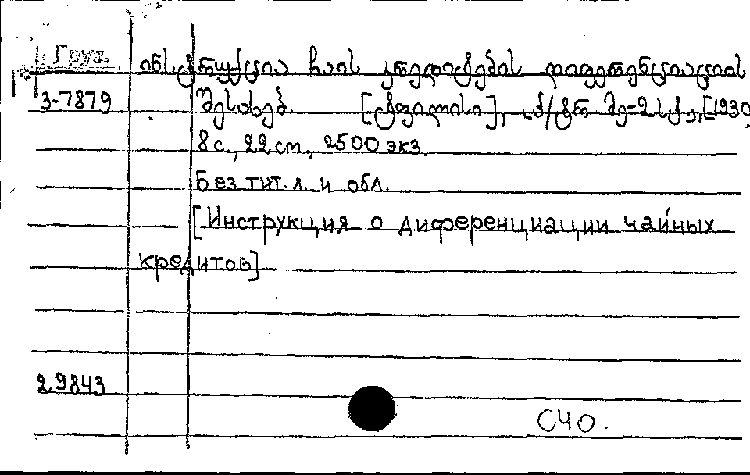 Груз.
ინსტრუქცია ჩაის კრედიტების დიფერენციაციის
3-7879 შესახებ. [ტფილისი], ს/ტრ მე-2 სტ., [1930
8 с., 22 см, 2500 экз.
Без тит. л. и обл.
[Инструкция о диференциации чайных
кредитов]
2.9843
С40.